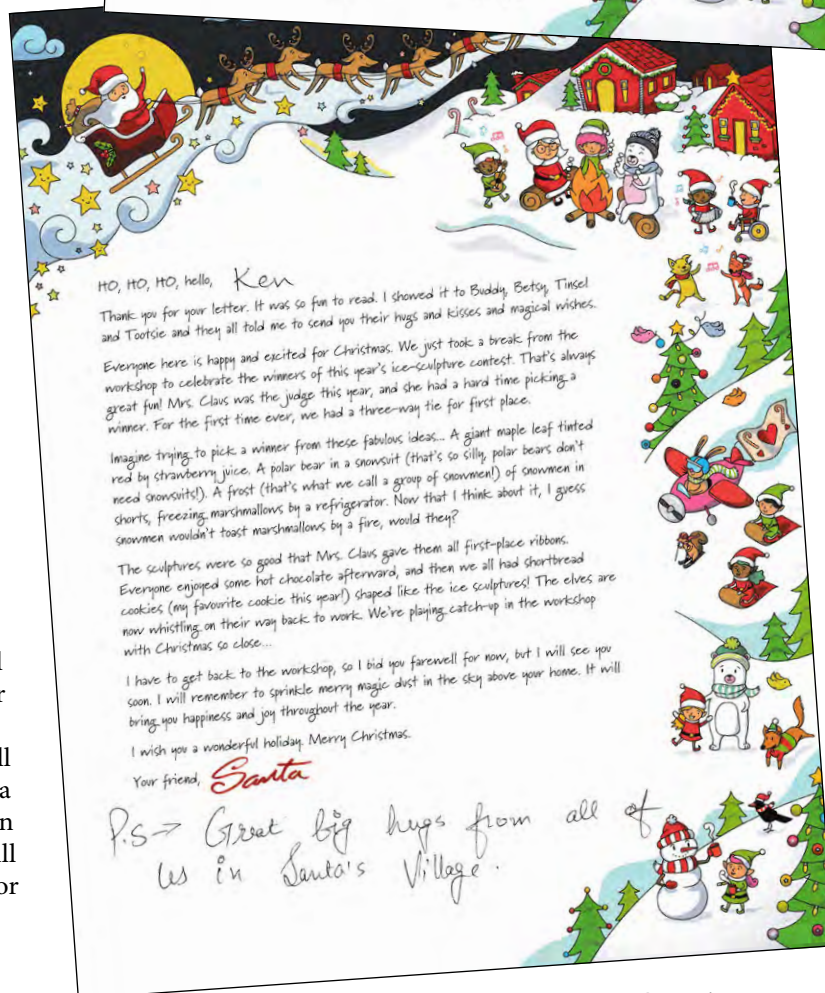 HO, HO, HO, hello, Ken
Thank you for your letter. It was so fun to read. I showed it to Buddy, Betsy, Tinsel
and Tootsie and they all told me to send you their hugs and kisses and magical wishes.
Everyone here is happy and excited for Christmas. We just took a break from the
workshop to celebrate the winners of this year's ice-sculpture contest. That's always
great fun! Mrs. Claus was the judge this year, and she had a hard time picking a
winner. For the first time ever, we had a three-way tie for first place.
Imagine trying to pick a winner from these fabulous ideas... A giant maple leaf tinted
red by strawberry juice. A polar bear in a snowsuit (that's so silly, polar bears don't
need snowsuits!). A frost (that's what we call a group of snowmen!) of snowmen in
shorts, freezing marshmallows by a refrigerator. Now that I think about it, I guess
snowmen wouldn't toast marshmallows by a fire, would they?
The sculptures were so good that Mrs. Claus gave them all first-place ribbons.
Everyone enjoyed some hot chocolate afterward, and then we all had shortbread
cookies (my favourite cookie this year!) shaped like the ice sculptures! The elves are
now whistling on their way back to work. We're playing catch-up in the workshop
with Christmas so close...
I have to get back to the workshop, so I bid you farewell for now, but I will see you
soon. I will remember to sprinkle merry magic dust in the sky above your home. It will
bring you happiness and joy throughout the year.
I wish you a wonderful holiday. Merry Christmas.
Your friend, Santa
P.S→ Great big hugs from all of
us in Santa's Village.